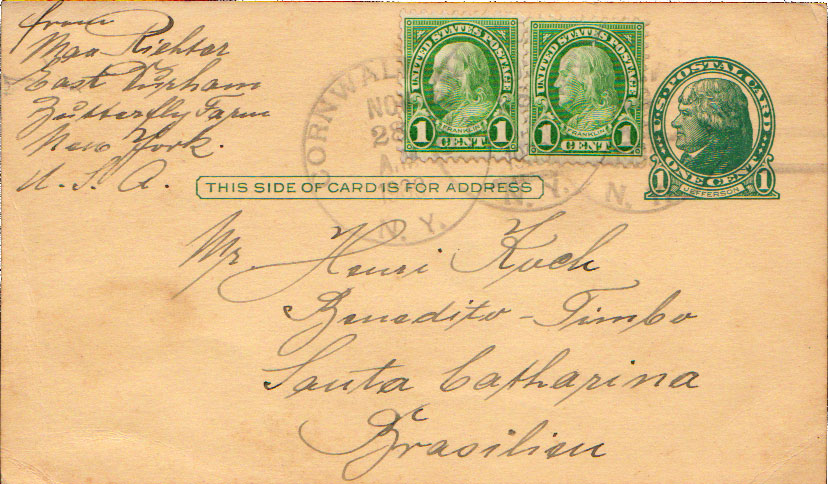 from
Max Richter
East Durham
Butterfly Farm
New York.
U. S. A.
UNITED STATES POSTAGE
FRANKLIN
1 CENT 1
UNITED STATES POSTAGE
FRANKLIN
1 CENT 1
U.S. POSTAL CARD
ONE CENT
1 JEFFERSON 1
CORNWALL
NOV
28
N. Y.
N. Y.
N.
THIS SIDE OF CARD IS FOR ADDRESS
Mr. Henri Koch
Benedito - Timbo
Santa Catharina
Brasilien